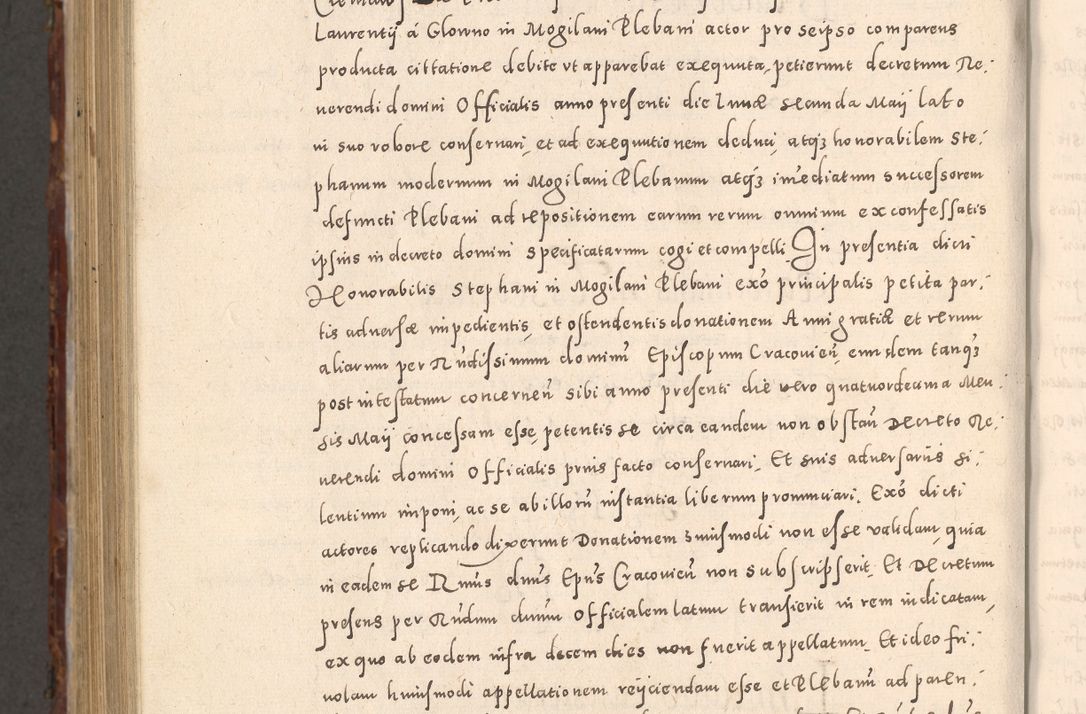 Laurentij á Glowno in Mogilani Plebani actor pro seipso comparens
producta cittatione debite vt apparebat exequuta, petierunt decretum Re.
uerendi domini Officialis anno presenti die lunæ secunda Maij lato
in suo robore conseruari, et ad exequutionem deduci, atq3 honorabilem Ste.
phanum modernum in Mogilani Plebanum atq3 imediatum successorem
defuncti Plebani ad repositionem earum rerum omnium ex confessatis
ipsius in decreto domini specificatarum cogi et compelli. In presentia dicti
Honorabilis Stephani in Mogilani Plebani exo principalis petita par.
tis aduersæ impedientis, et ostendentis donationem Anni gratiæ et rerum
aliarum per Rndissimum dominu Episcopum Cracouien, eundem tanq3
post intestatum concernen sibi anno presenti die vero quatuordecima Men.
sis Maij concessam esse, petentis se circa eandem non obstan Decreto Re.
uerendi domini Officialis prius facto conseruari. Et suis aduersariis si.
lentium imponi, ac se ab illoru instantia liberum pronunciari. Exo dicti
actores replicando dixerunt Donationem huiusmodi non esse validam, quia
in eadem se Rmus dnus Epus Cracouien non subscripserit. Et Decretum
presens per Rndum dnum Officialem latum transierit in rem iudicatam,
ex quo ab eodem infra decem dies non fuerit appellatum. Et ideo fri.
uolam huiusmodi appellationem reijciendam esse et Plebanu ad paren.